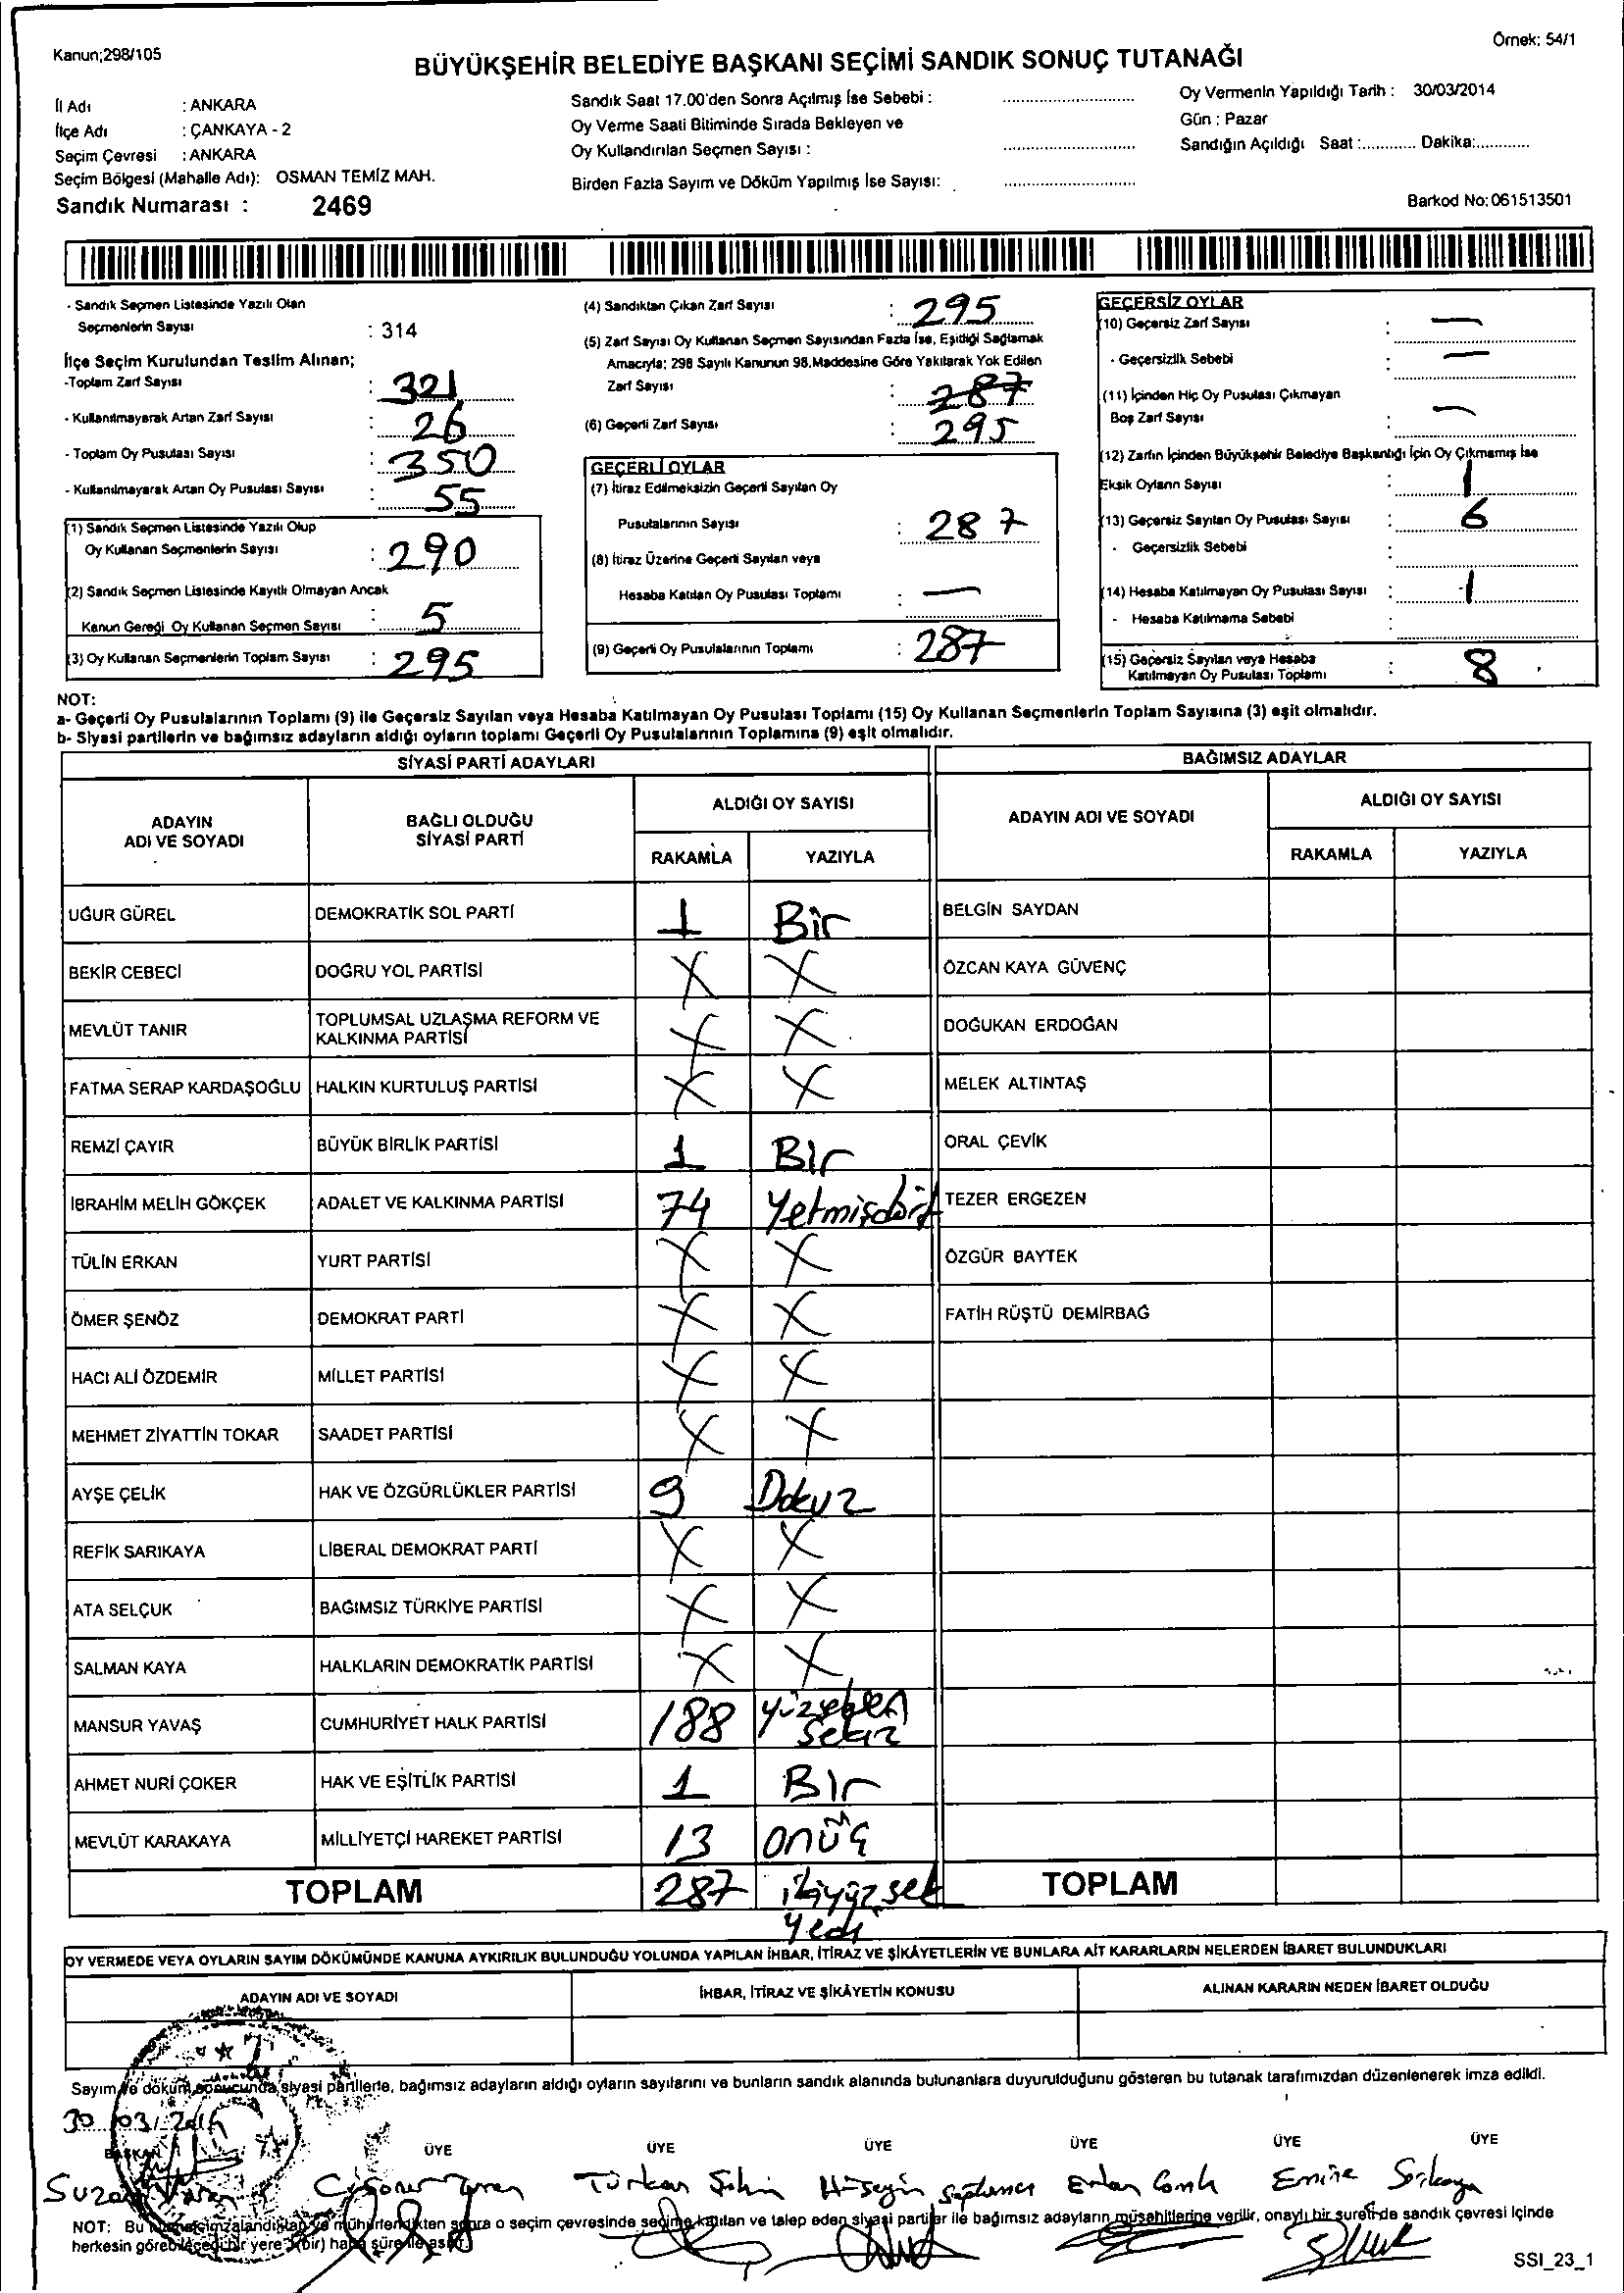 Kanun;298/105
Örnek: 54/1
BÜYÜKŞEHİR BELEDİYE BAŞKANI SEÇİMİ SANDIK SONUÇ TUTANAĞI
İl Adı : ANKARA
İlçe Adı : ÇANKAYA - 2
Seçim Çevresi : ANKARA
Seçim Bölgesi (Mahalle Adı): OSMAN TEMİZ MAH.
Sandık Numarası : 2469
Sandık Saat 17.00'den Sonra Açılmış İse Sebebi :
Oy Verme Saati Bitiminde Sırada Bekleyen ve
Oy Kullandırılan Seçmen Sayısı :
Birden Fazla Sayım ve Döküm Yapılmış İse Sayısı:
Oy Vermenin Yapıldığı Tarih : 30/03/2014
Gün : Pazar
Sandığın Açıldığı Saat :............ Dakika:............
Barkod No: 061513501
- Sandık Seçmen Listesinde Yazılı Olan
Seçmenlerin Sayısı : 314
İlçe Seçim Kurulundan Teslim Alınan;
-Toplam Zarf Sayısı : 321
- Kullanılmayarak Artan Zarf Sayısı : 26
- Toplam Oy Pusulası Sayısı : 350
- Kullanılmayarak Artan Oy Pusulası Sayısı : 55
(1) Sandık Seçmen Listesinde Yazılı Olup
Oy Kullanan Seçmenlerin Sayısı : 290
(2) Sandık Seçmen Listesinde Kayıtlı Olmayan Ancak
Kanun Gereği Oy Kullanan Seçmen Sayısı : 5
(3) Oy Kullanan Seçmenlerin Toplam Sayısı : 295
(4) Sandıktan Çıkan Zarf Sayısı : 295
(5) Zarf Sayısı Oy Kullanan Seçmen Sayısından Fazla İse, Eşitliği Sağlamak
Amacıyla; 298 Sayılı Kanunun 98.Maddesine Göre Yakılarak Yok Edilen
Zarf Sayısı : 287
(6) Geçerli Zarf Sayısı : 295
GEÇERLİ OYLAR
(7) İtiraz Edilmeksizin Geçerli Sayılan Oy
Pusulalarının Sayısı : 287
(8) İtiraz Üzerine Geçerli Sayılan veya
Hesaba Katılan Oy Pusulası Toplamı : —
(9) Geçerli Oy Pusulalarının Toplamı : 287
GEÇERSİZ OYLAR
(10) Geçersiz Zarf Sayısı : —
- Geçersizlik Sebebi : —
(11) İçinden Hiç Oy Pusulası Çıkmayan
Boş Zarf Sayısı : —
(12) Zarfın İçinden Büyükşehir Belediye Başkanlığı İçin Oy Çıkmamış İse
Eksik Oyların Sayısı : 1
(13) Geçersiz Sayılan Oy Pusulası Sayısı : 6
- Geçersizlik Sebebi :
(14) Hesaba Katılmayan Oy Pusulası Sayısı : 1
- Hesaba Katılmama Sebebi :
(15) Geçersiz Sayılan veya Hesaba
Katılmayan Oy Pusulası Toplamı : 8
NOT:
a- Geçerli Oy Pusulalarının Toplamı (9) ile Geçersiz Sayılan veya Hesaba Katılmayan Oy Pusulası Toplamı (15) Oy Kullanan Seçmenlerin Toplam Sayısına (3) eşit olmalıdır.
b- Siyasi partilerin ve bağımsız adayların aldığı oyların toplamı Geçerli Oy Pusulalarının Toplamına (9) eşit olmalıdır.
SİYASİ PARTİ ADAYLARI
BAĞIMSIZ ADAYLAR
ADAYIN
ADI VE SOYADI
BAĞLI OLDUĞU
SİYASİ PARTİ
ALDIĞI OY SAYISI
RAKAMLA YAZIYLA
ADAYIN ADI VE SOYADI
ALDIĞI OY SAYISI
RAKAMLA YAZIYLA
UĞUR GÜREL DEMOKRATİK SOL PARTİ 1 Bir BELGİN SAYDAN
BEKİR CEBECİ DOĞRU YOL PARTİSİ X X ÖZCAN KAYA GÜVENÇ
MEVLÜT TANIR TOPLUMSAL UZLAŞMA REFORM VE
KALKINMA PARTİSİ X X DOĞUKAN ERDOĞAN
FATMA SERAP KARDAŞOĞLU HALKIN KURTULUŞ PARTİSİ X X MELEK ALTINTAŞ
REMZİ ÇAYIR BÜYÜK BİRLİK PARTİSİ 1 Bir ORAL ÇEVİK
İBRAHİM MELİH GÖKÇEK ADALET VE KALKINMA PARTİSİ 74 Yetmişdört TEZER ERGEZEN
TÜLİN ERKAN YURT PARTİSİ X X ÖZGÜR BAYTEK
ÖMER ŞENÖZ DEMOKRAT PARTİ X X FATİH RÜŞTÜ DEMİRBAĞ
HACI ALİ ÖZDEMİR MİLLET PARTİSİ X X
MEHMET ZİYATTİN TOKAR SAADET PARTİSİ X X
AYŞE ÇELİK HAK VE ÖZGÜRLÜKLER PARTİSİ 9 Dokuz
REFİK SARIKAYA LİBERAL DEMOKRAT PARTİ X X
ATA SELÇUK BAĞIMSIZ TÜRKİYE PARTİSİ X X
SALMAN KAYA HALKLARIN DEMOKRATİK PARTİSİ X X
MANSUR YAVAŞ CUMHURİYET HALK PARTİSİ 188 Yüzseksen
sekiz
AHMET NURİ ÇOKER HAK VE EŞİTLİK PARTİSİ 1 Bir
MEVLÜT KARAKAYA MİLLİYETÇİ HAREKET PARTİSİ 13 onüç
TOPLAM 287 ikiyüzsek TOPLAM
yedi
OY VERMEDE VEYA OYLARIN SAYIM DÖKÜMÜNDE KANUNA AYKIRILIK BULUNDUĞU YOLUNDA YAPILAN İHBAR, İTİRAZ VE ŞİKÂYETLERİN VE BUNLARA AİT KARARLARIN NELERDEN İBARET BULUNDUKLARI
ADAYIN ADI VE SOYADI İHBAR, İTİRAZ VE ŞİKÂYETİN KONUSU ALINAN KARARIN NEDEN İBARET OLDUĞU
Sayım ve döküm sonucunda siyasi partilerle, bağımsız adayların aldığı oyların sayılarını ve bunların sandık alanında bulunanlara duyurulduğunu gösteren bu tutanak tarafımızdan düzenlenerek imza edildi.
30/03/2014
BAŞKAN ÜYE ÜYE ÜYE ÜYE ÜYE ÜYE
Türkan Şahin Hüseyin Emine
NOT: Bu tutanak imzalandıktan ve mühürlendikten sonra o seçim çevresinde seçime katılan ve talep eden siyasi partiler ile bağımsız adayların müşahitlerine verilir, onaylı bir sureti de sandık çevresi içinde
herkesin görebileceği bir yere 1(bir) hafta süre ile asılır.
SSI_23_1